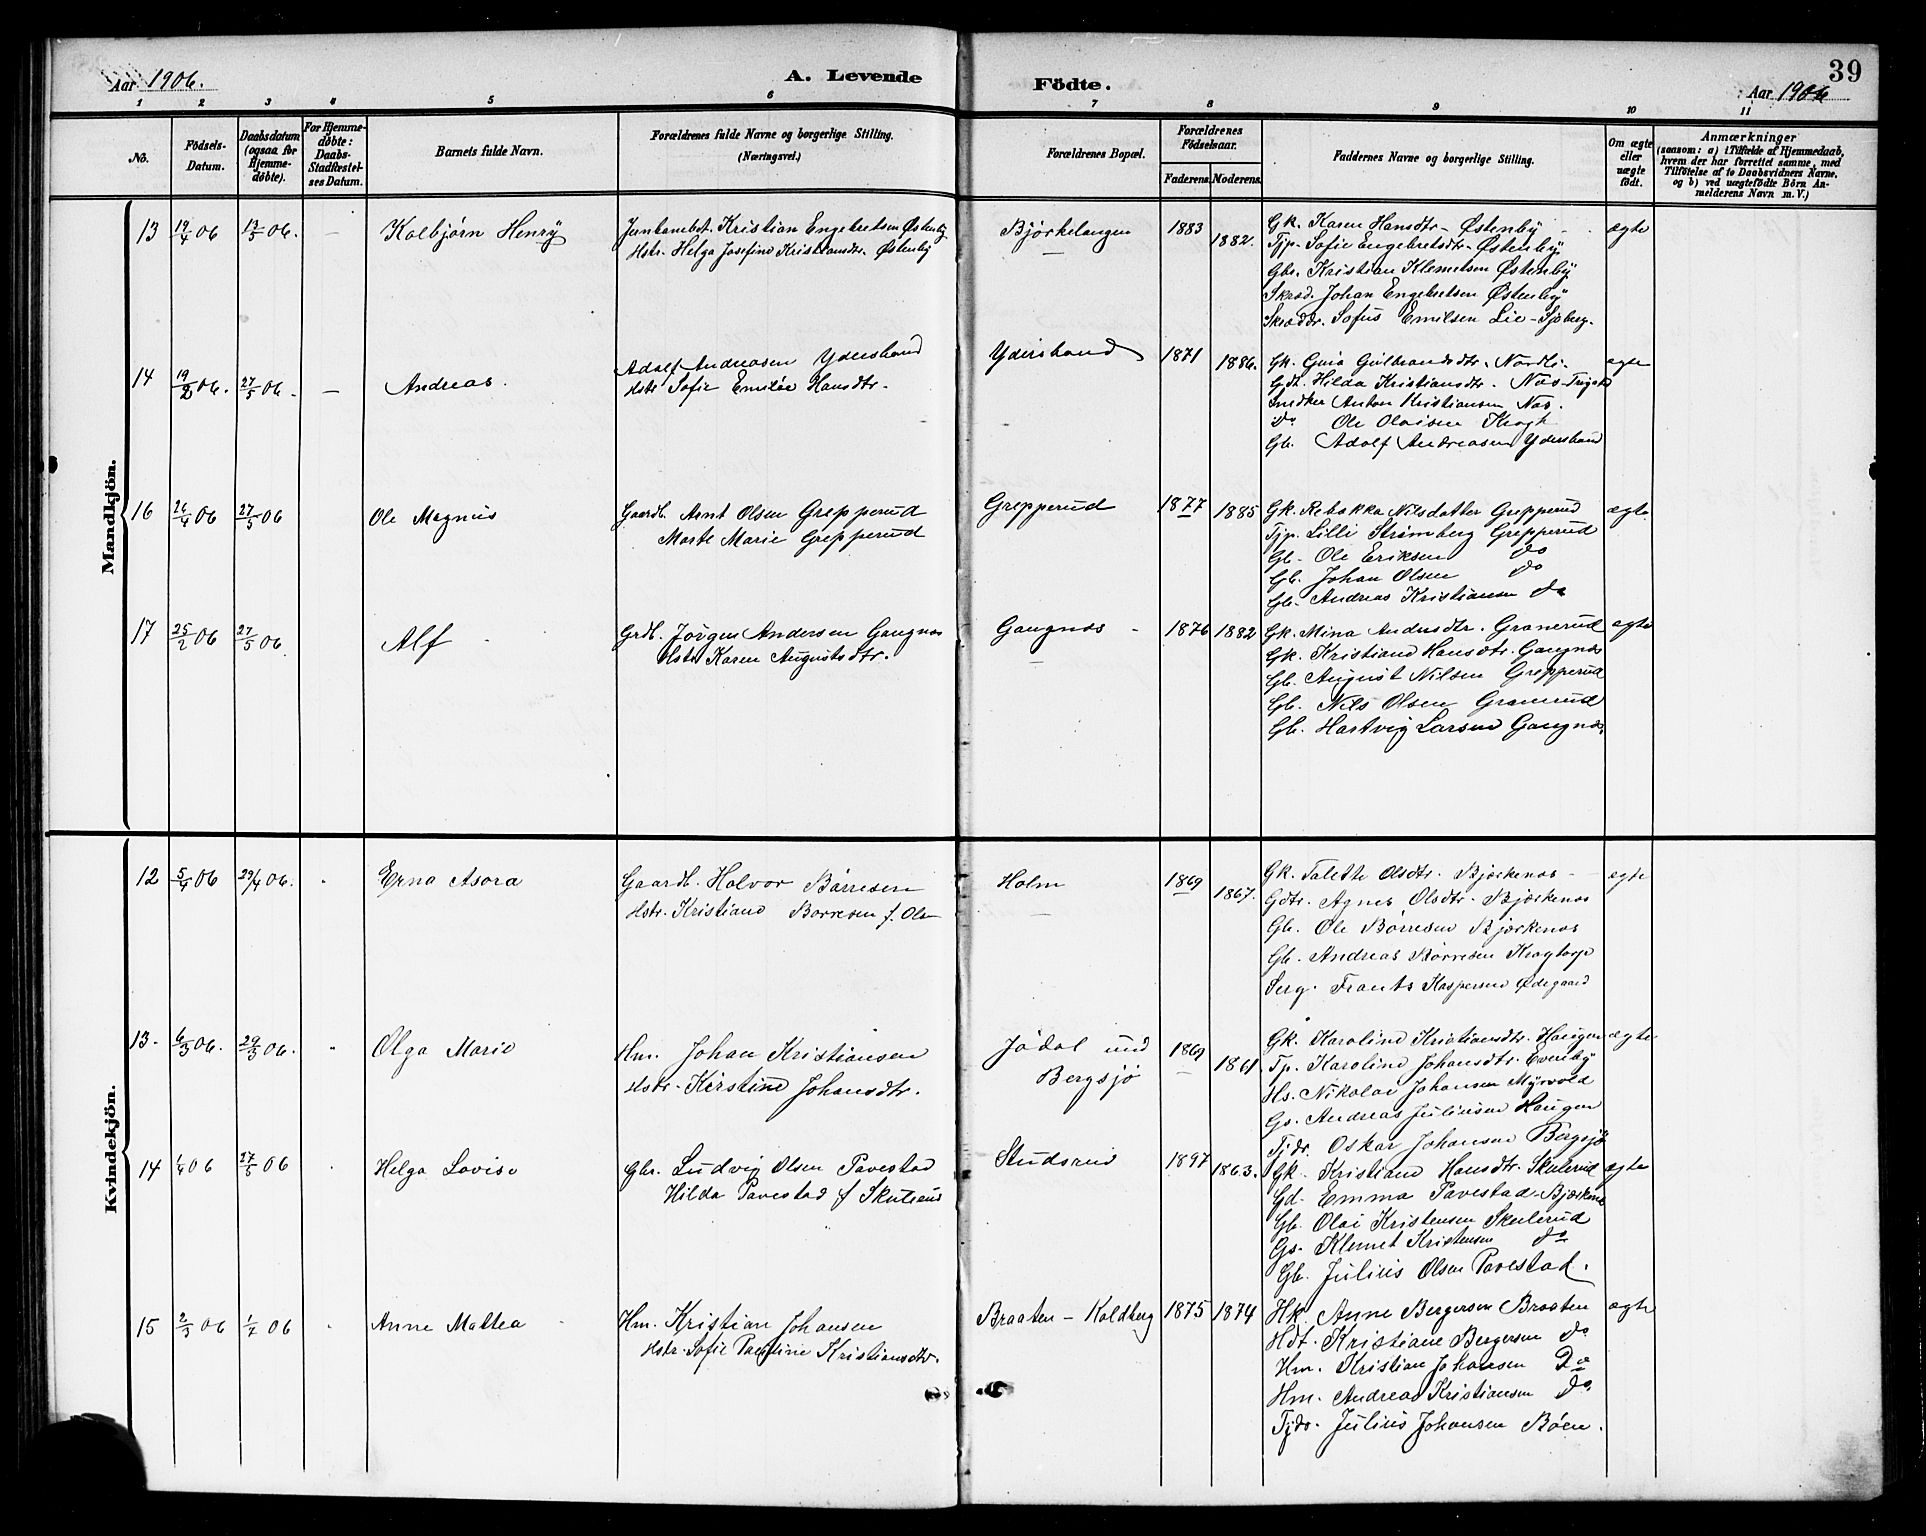 Aar 1906.
A. Levende
Födte.
39
Aar 1906
1 2 3 4 5 6 7 8 9 10 11
No.
Födsels-Datum.
Daabsdatum (ogsaa for Hjemme-döbte).
For Hjemme-döbte: Daabs-Stadfæstel-ses Datum.
Barnets fulde Navn.
Forældrenes fulde Navne og borgerlige Stilling. (Næringsvei.)
Forældrenes Bopæl.
Forældrenes Födselsaar.
Faderens. Moderens.
Faddernes Navne og borgerlige Stilling.
Om ægte eller uægte födt.
Anmærkninger
(saasom: a) i Tilfælde af Hjemmedaab, hvem der har forrettet samme, med Tilföielse af to Daabsvidners Navne, og b) ved uægtefödte Börn An-melderens Navn m. V.)
Mandkjön.
13 19/4 06 13/5 06. – Kolbjørn Henry
Jernbanebet. Kristian Engebretsen Østenby
Hstr. Helga Josefine Kristiansdtr. Østenby
Bjørkelangen 1883 1882.
Gk. Karen Hansdtr – Østenby
Tjp. Sofie Engebretsdtr – Østenby
Gbr. Kristian Klemetsen Østenby
Skræd. Johan Engebretsen Østenby
Skræddr. Sofus Emilsen Lie – Sjøberg.
ægte
14 19/2 06. 27/5 06. – Andreas.
Adolf Andreasen Ydersbond
Hstr Sofie Emilie Hansdtr.
Ydersbond 1871 1886.
Gk. Guia Gulbrandsdtr. Nordli.
Gdt. Hilda Kristiansdtr. Næs
Snedker Anton Kristiansen Næs.
do Ole Olaisen Krogh
Gb. Adolf Andreasen Ydersbond
ægte
16 26/4 06 27/5 06 Ole Magnus
Gaardb. Arnt Olsen Grepperud
Marte Marie Grepperud
Grepperud 1877 1885
Gk. Rebekka Nilsdatter Grepperud
Tjp. Lilli Strømberg Grepperud
Gb. Ole Eriksen do
Gb. Johan Olsen do
Gb. Andreas Kristiansen do
ægte
17 25/2 06 27/5 06. Alf
Grdb. Jørgen Andersen Gangnæs
Hstr Karen Augustsdtr.
Gangnæs 1876 1882
Gk. Mina Andersdtr. Granerud
Gk. Kristiane Hansdtr. Gangnæs
Gb. August Nilsen Grepperud
Gb. Nils Olsen Granerud
Gb. Hartvig Larsen Gangnæs.
ægte
Kvindekjön.
12 5/4 06 29/4 06. Erna Asora
Gaardb. Halvor Børresen
Hstr. Kristiane Børresen f. Olsen
Holm 1869 1867.
Gk. Talette Olsdtr. Bjørkenæs
Gdtr. Agnes Olsdtr. Bjørkenæs
Gb. Ole Børresen Bjørkenæs
Gb. Andreas Børresen Krogtorp
Serg. Frants Kaspersen Ødegaard
ægte
13. 6/3 06. 29/3 06. Olga Marie
Hm. Johan Kristiansen
Hstr. Kirstine Johansdtr.
Jødal und Bergsjø 1869 1861.
Gk. Karoline Kristiansdtr. Haugen
Tp. Karoline Johansdtr. Evenby
Hs. Nikolai Johansen Myrvold
Gs. Andreas Juliusen Haugen
Tjdr. Oskar Johansen Bergsjø
ægte
14 1/4 06 27/5 06 Helga Lovise
Gbr. Ludvig Olsen Pavestad
Hilda Pavestad f Skulerud
Studsrud 1897 1863.
Gk. Kristiane Hansdtr. Skulerud
Gd. Emma Pavestad – Bjørkenæs
Gb. Olai Kristensen Skulerud
Gs. Klemet Kristensen do
Gb. Julius Olsen Pavestad.
ægte
15 2/3 06 1/7 06 Anne Mattea
Hm. Kristian Johansen
Hstr. Sofie Pauline Kristiansdtr.
Braaten – Koldberg 1875 1874
Hk. Anne Bergersen Braaten
Hdt. Kristiane Bergersen do
Hm. Kristian Johansen Do
Hm. Andreas Kristiansen do
Tjdr. Julius Johansen Bøen.
ægte